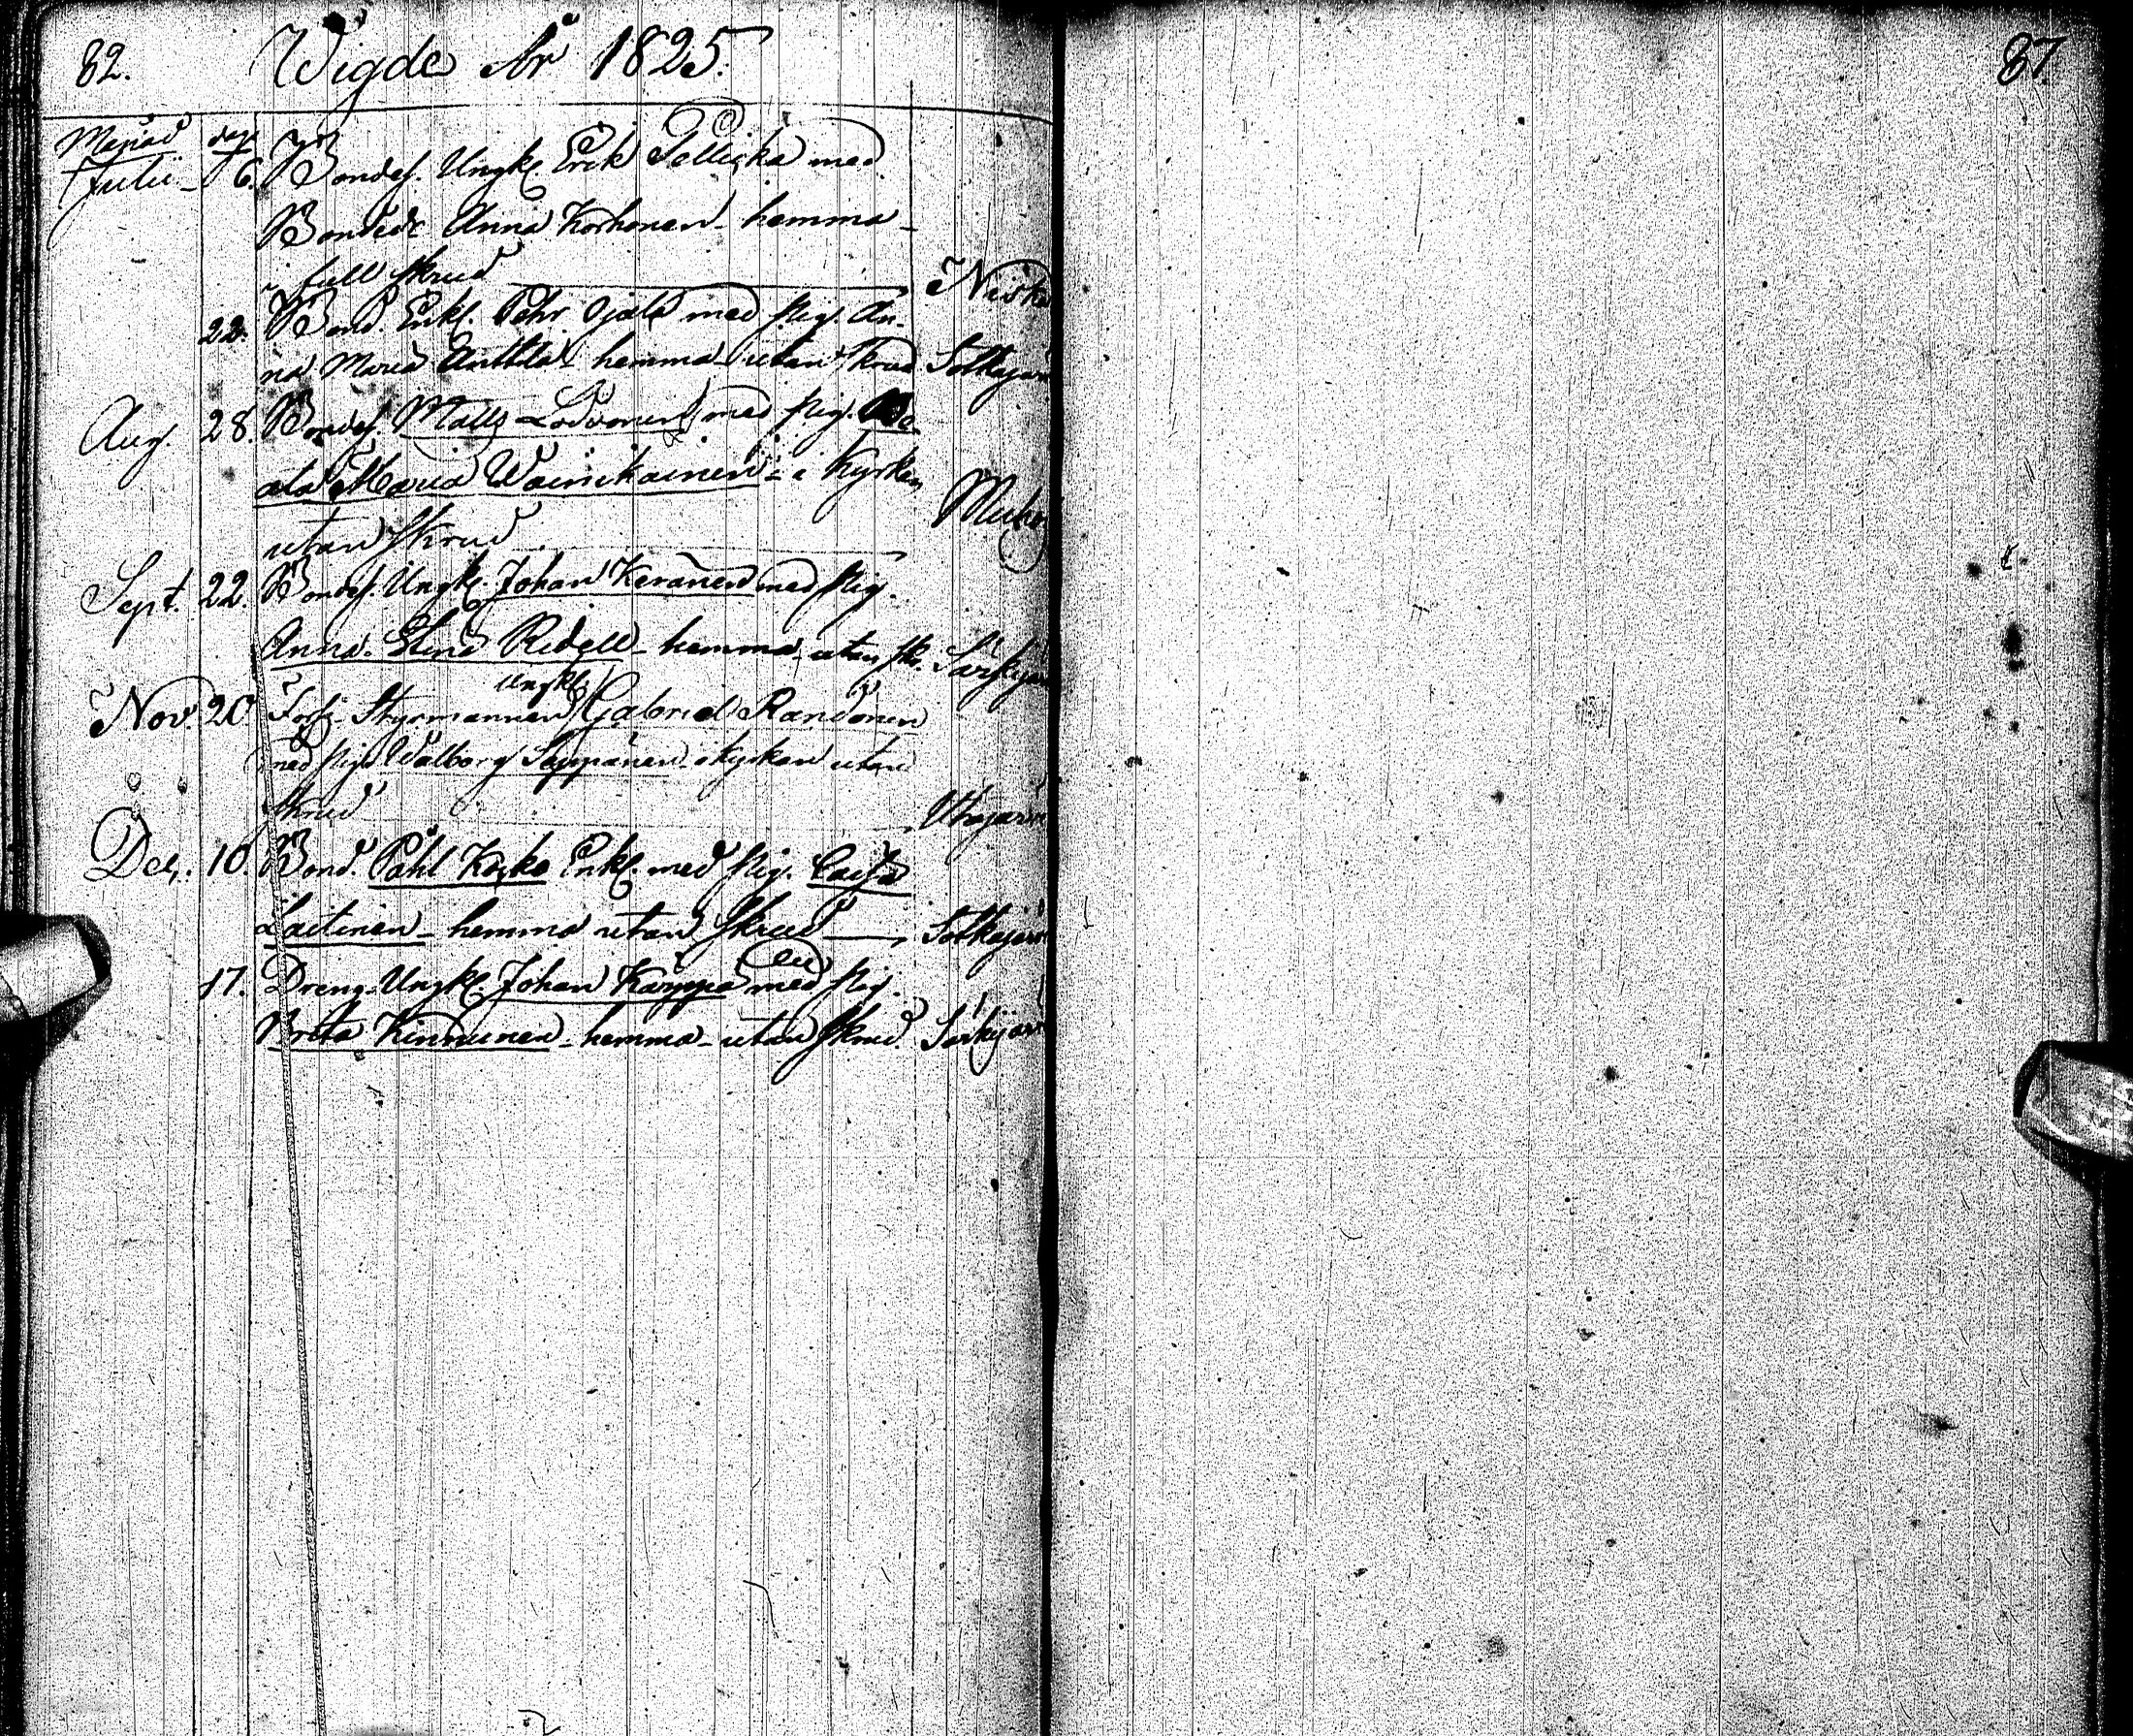 82. Wigde År 1825.
87.
Månad dag
Julii 6. Bondes. Ungk. Erik Pellicka med
Bonded. Anna Korhonen - hemma -
i full skrud Niska
22. Bond. Enkl. Pehr Ojala med pig. An-
na Maria Anttila - hemma - utan skrud Sotkajärvi
Aug. 28. Bondes. Matts Lovonen med pig. Be-
ata Maria Wainikainen - i Kyrkan
utan skrud Muhos
Sept. 22. Bondes. Ungk. Johan Keranen med pig.
Anna Stina Ridell - hemma - utan skr. Särkijärvi
Ungkl.
Nov. 20 Fors-Styrmannen Gabriel Randonen
med pig. Walborg Seppänen i kyrkan utan
skrud Utajärvi
Dec. 10. Bond. Påhl Koske Enkl. med pig. Caisa
Laitinen - hemma utan skrud - Sotkajärvi
17. Dreng. Ungk. Johan Karppa med pig.
Brita Kinnunen - hemma - utan skrud. Särkijärvi